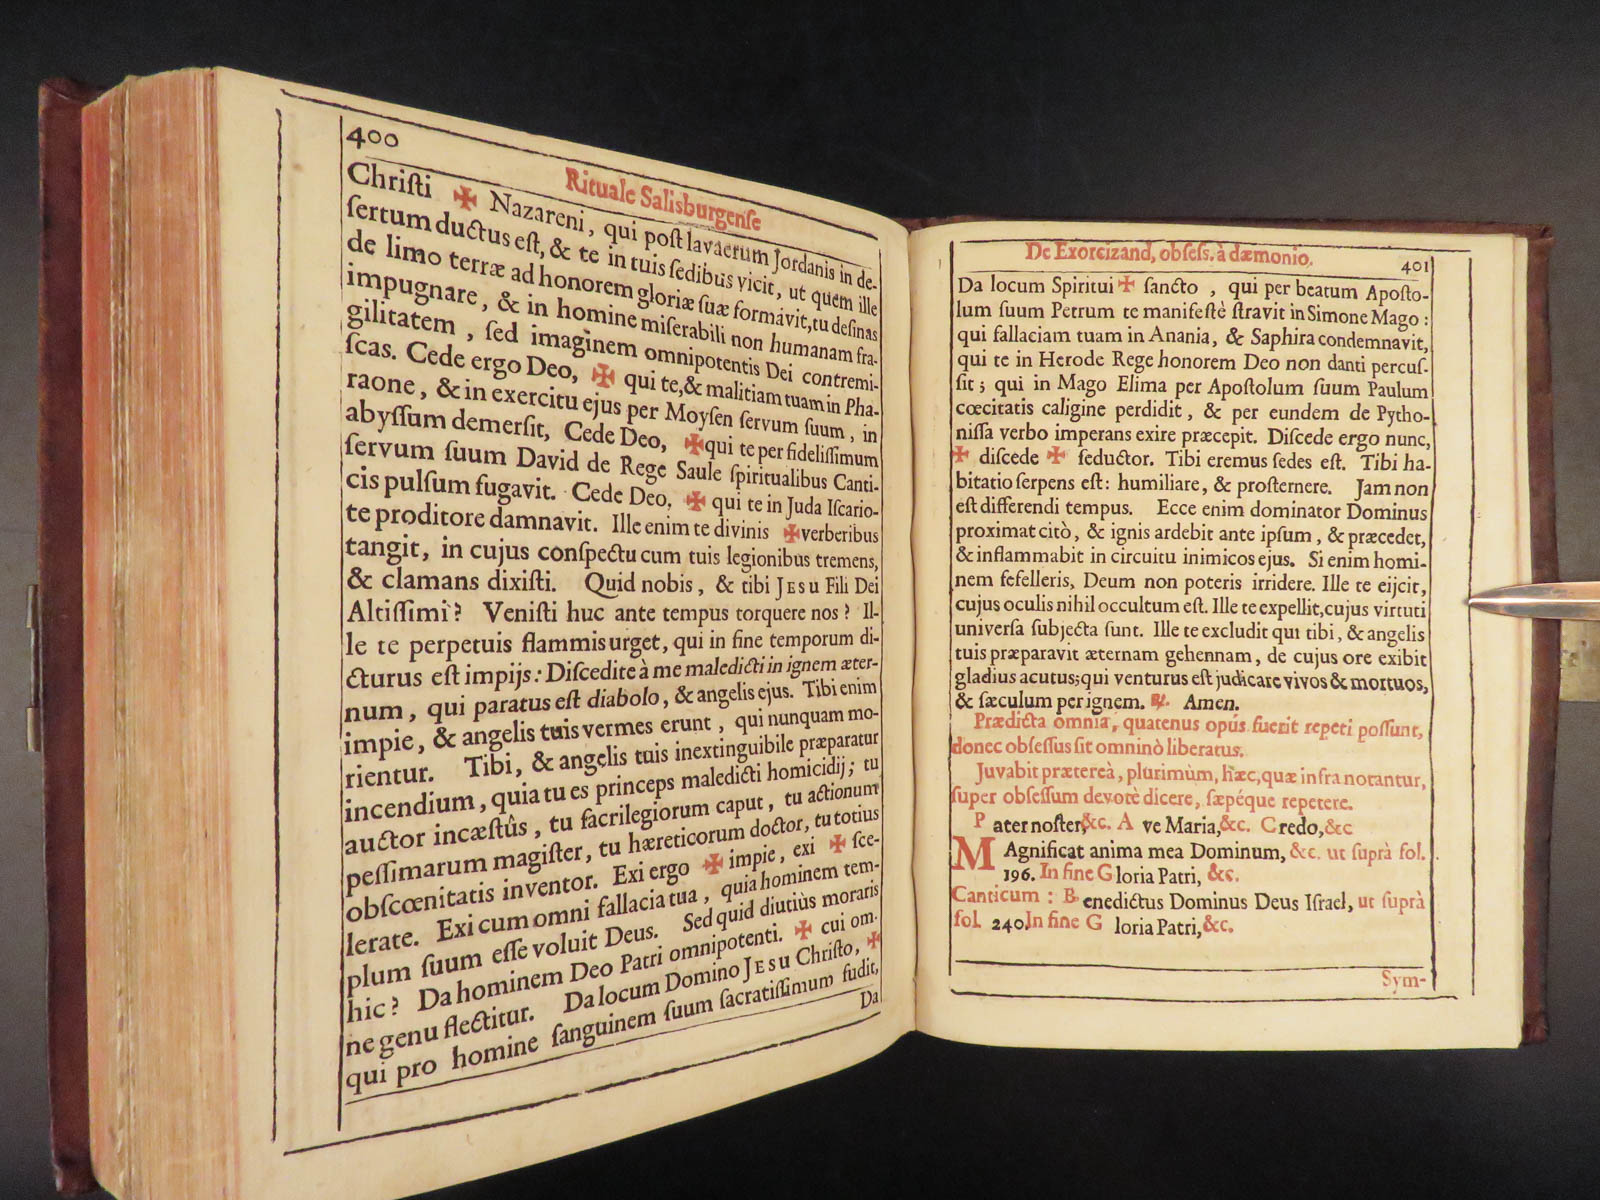 400
Rituale Salisburgense
Chriſti ✠ Nazareni, qui poſt lavacrum Jordanis in de-
ſertum ductus eſt, & te in tuis ſedibus vicit, ut quem ille
de limo terræ ad honorem gloriæ ſuæ formavit, tu deſinas
impugnare, & in homine miſerabili non humanam fra-
gilitatem, ſed imaginem omnipotentis Dei contremi-
ſcas. Cede ergo Deo, ✠ qui te, & malitiam tuam in Pha-
raone, & in exercitu ejus per Moyſen ſervum ſuum, in
abyſſum demerſit, Cede Deo, ✠ qui te per fideliſſimum
ſervum ſuum David de Rege Saule ſpiritualibus Canti-
cis pulſum fugavit. Cede Deo, ✠ qui te in Juda Iſcario-
te proditore damnavit. Ille enim te divinis ✠ verberibus
tangit, in cujus conſpectu cum tuis legionibus tremens,
& clamans dixiſti. Quid nobis, & tibi JESU Fili Dei
Altiſſimi? Veniſti huc ante tempus torquere nos? Il-
le te perpetuis flammis urget, qui in fine temporum di-
cturus eſt impijs: Diſcedite à me maledicti in ignem æter-
num, qui paratus eſt diabolo, & angelis ejus. Tibi enim
impie, & angelis tuis vermes erunt, qui nunquam mo-
rientur. Tibi, & angelis tuis inextinguibile præparatur
incendium, quia tu es princeps maledicti homicidij; tu
auctor incæſtûs, tu ſacrilegiorum caput, tu actionum
peſſimarum magiſter, tu hæreticorum doctor, tu totius
obſcœnitatis inventor. Exi ergo ✠ impie, exi ✠ ſce-
lerate. Exi cum omni fallacia tua, quia hominem tem-
plum ſuum eſſe voluit Deus. Sed quid diutiùs moraris
hic? Da hominem Deo Patri omnipotenti. ✠ cui om-
ne genu flectitur. Da locum Domino JESU Chriſto, ✠
qui pro homine ſanguinem ſuum ſacratiſſimum fudit,
Da
De Exorcizand, obſeſs. à dæmonio.
401
Da locum Spiritui ✠ ſancto, qui per beatum Apoſto-
lum ſuum Petrum te manifeſtè ſtravit in Simone Mago:
qui fallaciam tuam in Anania, & Saphira condemnavit,
qui te in Herode Rege honorem Deo non danti percuſ-
ſit; qui in Mago Elima per Apoſtolum ſuum Paulum
cœcitatis caligine perdidit, & per eundem de Pytho-
niſſa verbo imperans exire præcepit. Diſcede ergo nunc,
✠ diſcede ✠ ſeductor. Tibi eremus ſedes eſt. Tibi ha-
bitatio ſerpens eſt: humiliare, & proſternere. Jam non
eſt differendi tempus. Ecce enim dominator Dominus
proximat citò, & ignis ardebit ante ipſum, & præcedet,
& inflammabit in circuitu inimicos ejus. Si enim homi-
nem fefelleris, Deum non poteris irridere. Ille te eijcit,
cujus oculis nihil occultum eſt. Ille te expellit, cujus virtuti
univerſa ſubjecta ſunt. Ille te excludit qui tibi, & angelis
tuis præparavit æternam gehennam, de cujus ore exibit
gladius acutus; qui venturus eſt judicare vivos & mortuos,
& ſæculum per ignem. ℟. Amen.
Prædicta omnia, quatenus opús fuerit repeti poſſunt,
donec obſeſſus ſit omninò liberatus.
Juvabit prætereà, plurimùm, hæc, quæ infra notantur,
ſuper obſeſſum devotè dicere, ſæpéque repetere.
Pater noſter, &c. Ave Maria, &c. Credo, &c
MAgnificat anima mea Dominum, &c. ut ſuprà fol.
196. In fine Gloria Patri, &c.
Canticum: Benedictus Dominus Deus Iſrael, ut ſuprà
fol. 240. In fine Gloria Patri, &c.
Sym-